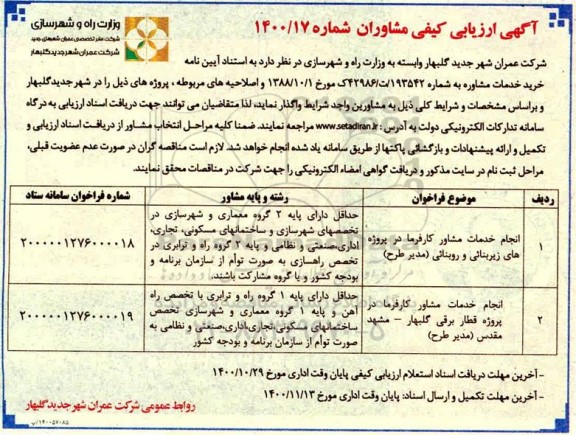 وزارت راه و شهرسازی
شرکت مادر تخصصی عمران شهرهای جدید
شرکت عمران شهر جدید گلبهار
آگهی ارزیابی کیفی مشاوران شماره ۱۴۰۰/۱۷
شرکت عمران شهر جدید گلبهار وابسته به وزارت راه و شهرسازی در نظر دارد به استناد آیین نامه
خرید خدمات مشاوره به شماره ۱۹۳۵۴۲/ت۴۲۹۸۶ک مورخ ۱۳۸۸/۱۰/۱ و اصلاحیه های مربوطه ، پروژه های ذیل را در شهر جدید گلبهار
و براساس مشخصات و شرایط کلی ذیل به مشاورین واجد شرایط واگذار نماید، لذا متقاضیان می توانند جهت دریافت اسناد ارزیابی به درگاه
سامانه تدارکات الکترونیکی دولت به آدرس : www.setadiran.ir مراجعه نمایند. ضمنا کلیه مراحل انتخاب مشاور از دریافت اسناد ارزیابی و
تکمیل و ارائه پیشنهادات و بازگشائی پاکتها از طریق سامانه یاد شده انجام خواهد شد. لازم است مناقصه گران در صورت عدم عضویت قبلی،
مراحل ثبت نام در سایت مذکور و دریافت گواهی امضاء الکترونیکی را جهت شرکت در مناقصات محقق نمایند.
ردیف موضوع فراخوان رشته و پایه مشاور شماره فراخوان سامانه ستاد
۱ انجام خدمات مشاور کارفرما در پروژه های زیربنائی و روبنائی (مدیر طرح)
حداقل دارای پایه ۲ گروه معماری و شهرسازی در
تخصصهای شهرسازی و ساختمانهای مسکونی، تجاری،
اداری،صنعتی و نظامی و پایه ۲ گروه راه و ترابری در
تخصص راهسازی به صورت توأم از سازمان برنامه و
بودجه کشور و یا گروه مشارکت باشند.
۲۰۰۰۰۰۱۲۷۶۰۰۰۰۱۸
۲ انجام خدمات مشاور کارفرما در
پروژه قطار برقی گلبهار – مشهد
مقدس (مدیر طرح)
حداقل دارای پایه ۱ گروه راه و ترابری با تخصص راه
آهن و پایه ۱ گروه معماری و شهرسازی تخصص
ساختمانهای مسکونی،تجاری،اداری،صنعتی و نظامی به
صورت توأم از سازمان برنامه و بودجه کشور
۲۰۰۰۰۰۱۲۷۶۰۰۰۰۱۹
- آخرین مهلت دریافت اسناد استعلام ارزیابی کیفی پایان وقت اداری مورخ ۱۴۰۰/۱۰/۲۹
- آخرین مهلت تکمیل و ارسال اسناد: پایان وقت اداری مورخ ۱۴۰۰/۱۱/۱۳
روابط عمومی شرکت عمران شهر جدید گلبهار
۱۴۰۰۵۷۰۸۵/پ